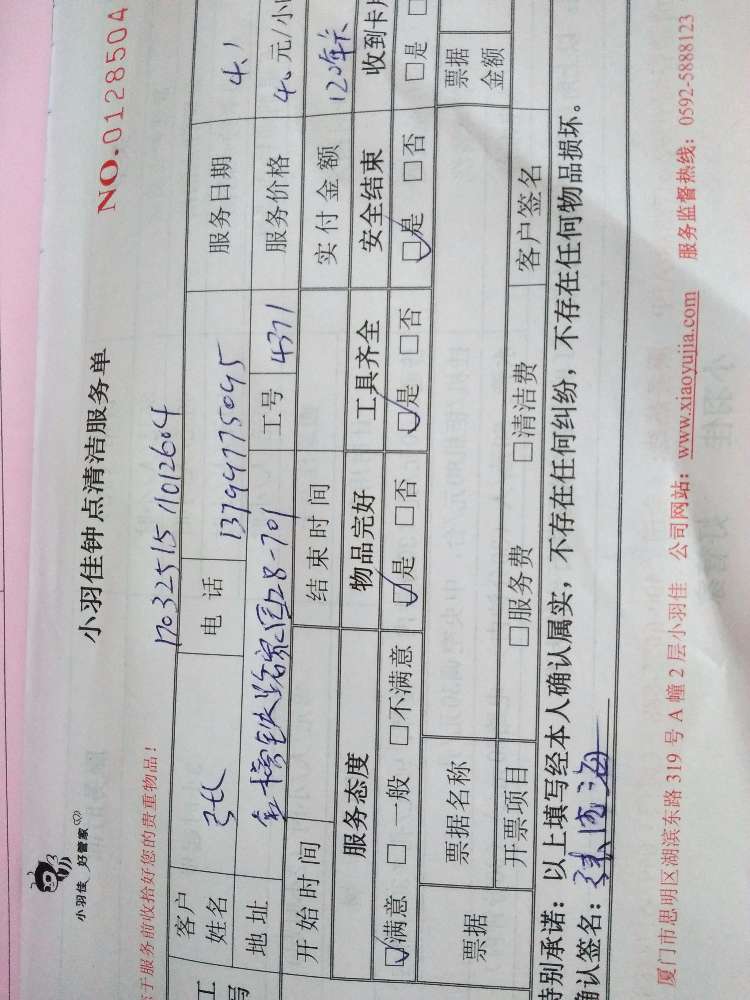 小羽佳 好管家
小羽佳钟点清洁服务单
NO.0128504
于服务前收拾好您的贵重物品！
客户姓名 电话 服务日期 4.1
地址 工号 4371 服务价格 40 元/小
开始时间 结束时间 实付金额
服务态度 物品完好 工具齐全 安全结束 收到卡片
☑满意 □一般 □不满意 ☑是 □否 ☑是 □否 ☑是 □否 □是
票据 票据名称 票据金额
开票项目 □服务费 □清洁费 客户签名
特别承诺：以上填写经本人确认属实，不存在任何纠纷，不存在任何物品损坏。
确认签名：
厦门市思明区湖滨东路 319 号 A 幢 2 层小羽佳 公司网站：www.xiaoyujia.com 服务监督热线：0592-5888123